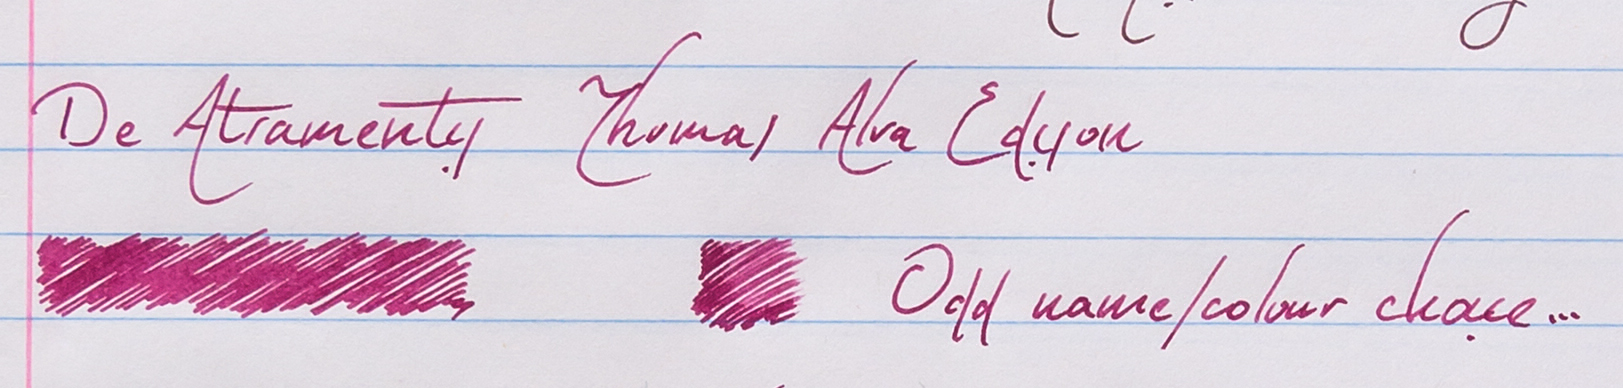 De Atramentis Thomas Alva Edison
Odd name/colour choice...